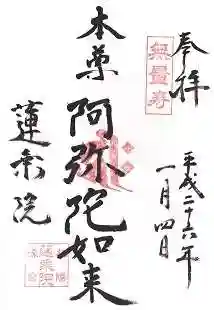 奉拝
平成二十六年
一月四日
無量寿
本尊
阿弥陀如来
蓮乗院